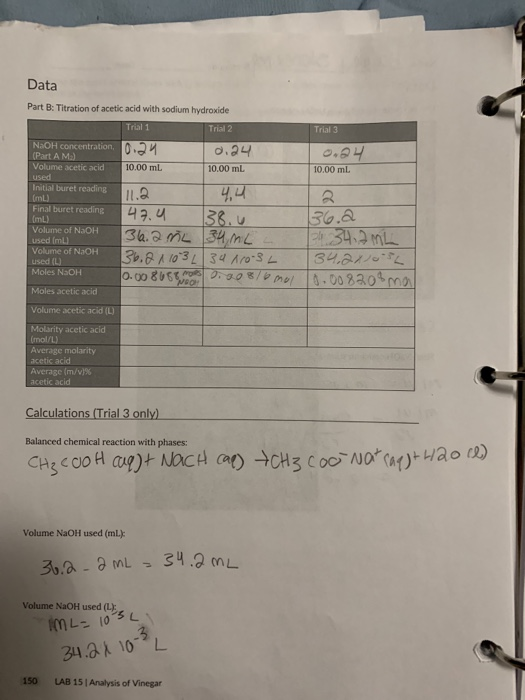 Data
Part B: Titration of acetic acid with sodium hydroxide
Trial 1 Trial 2 Trial 3
NaOH concentration (Part A M) 0.24 0.24 0.24
Volume acetic acid used 10.00 mL 10.00 mL 10.00 mL
Initial buret reading (mL) 11.2 4.4 2
Final buret reading (mL) 47.4 38. 36.2
Volume of NaOH used (mL) 36.2 mL 34 mL 34.2 mL
Volume of NaOH used (L) 36.2 x 10-3 L 34 x 10-3 L 34.2 x 10-3 L
Moles NaOH 0.008688 moles NaOH 0.00816 mol 0.008208 mol
Moles acetic acid
Volume acetic acid (L)
Molarity acetic acid (mol/L)
Average molarity acetic acid
Average (m/v)% acetic acid
Calculations (Trial 3 only)
Balanced chemical reaction with phases:
CH3COOH (aq) + NaOH (aq) → CH3COO- Na+ (aq) + H2O (l)
Volume NaOH used (mL):
36.2 - 2 mL = 34.2 mL
Volume NaOH used (L):
1mL = 10-3 L
34.2 x 10-3 L
150 LAB 15 | Analysis of Vinegar